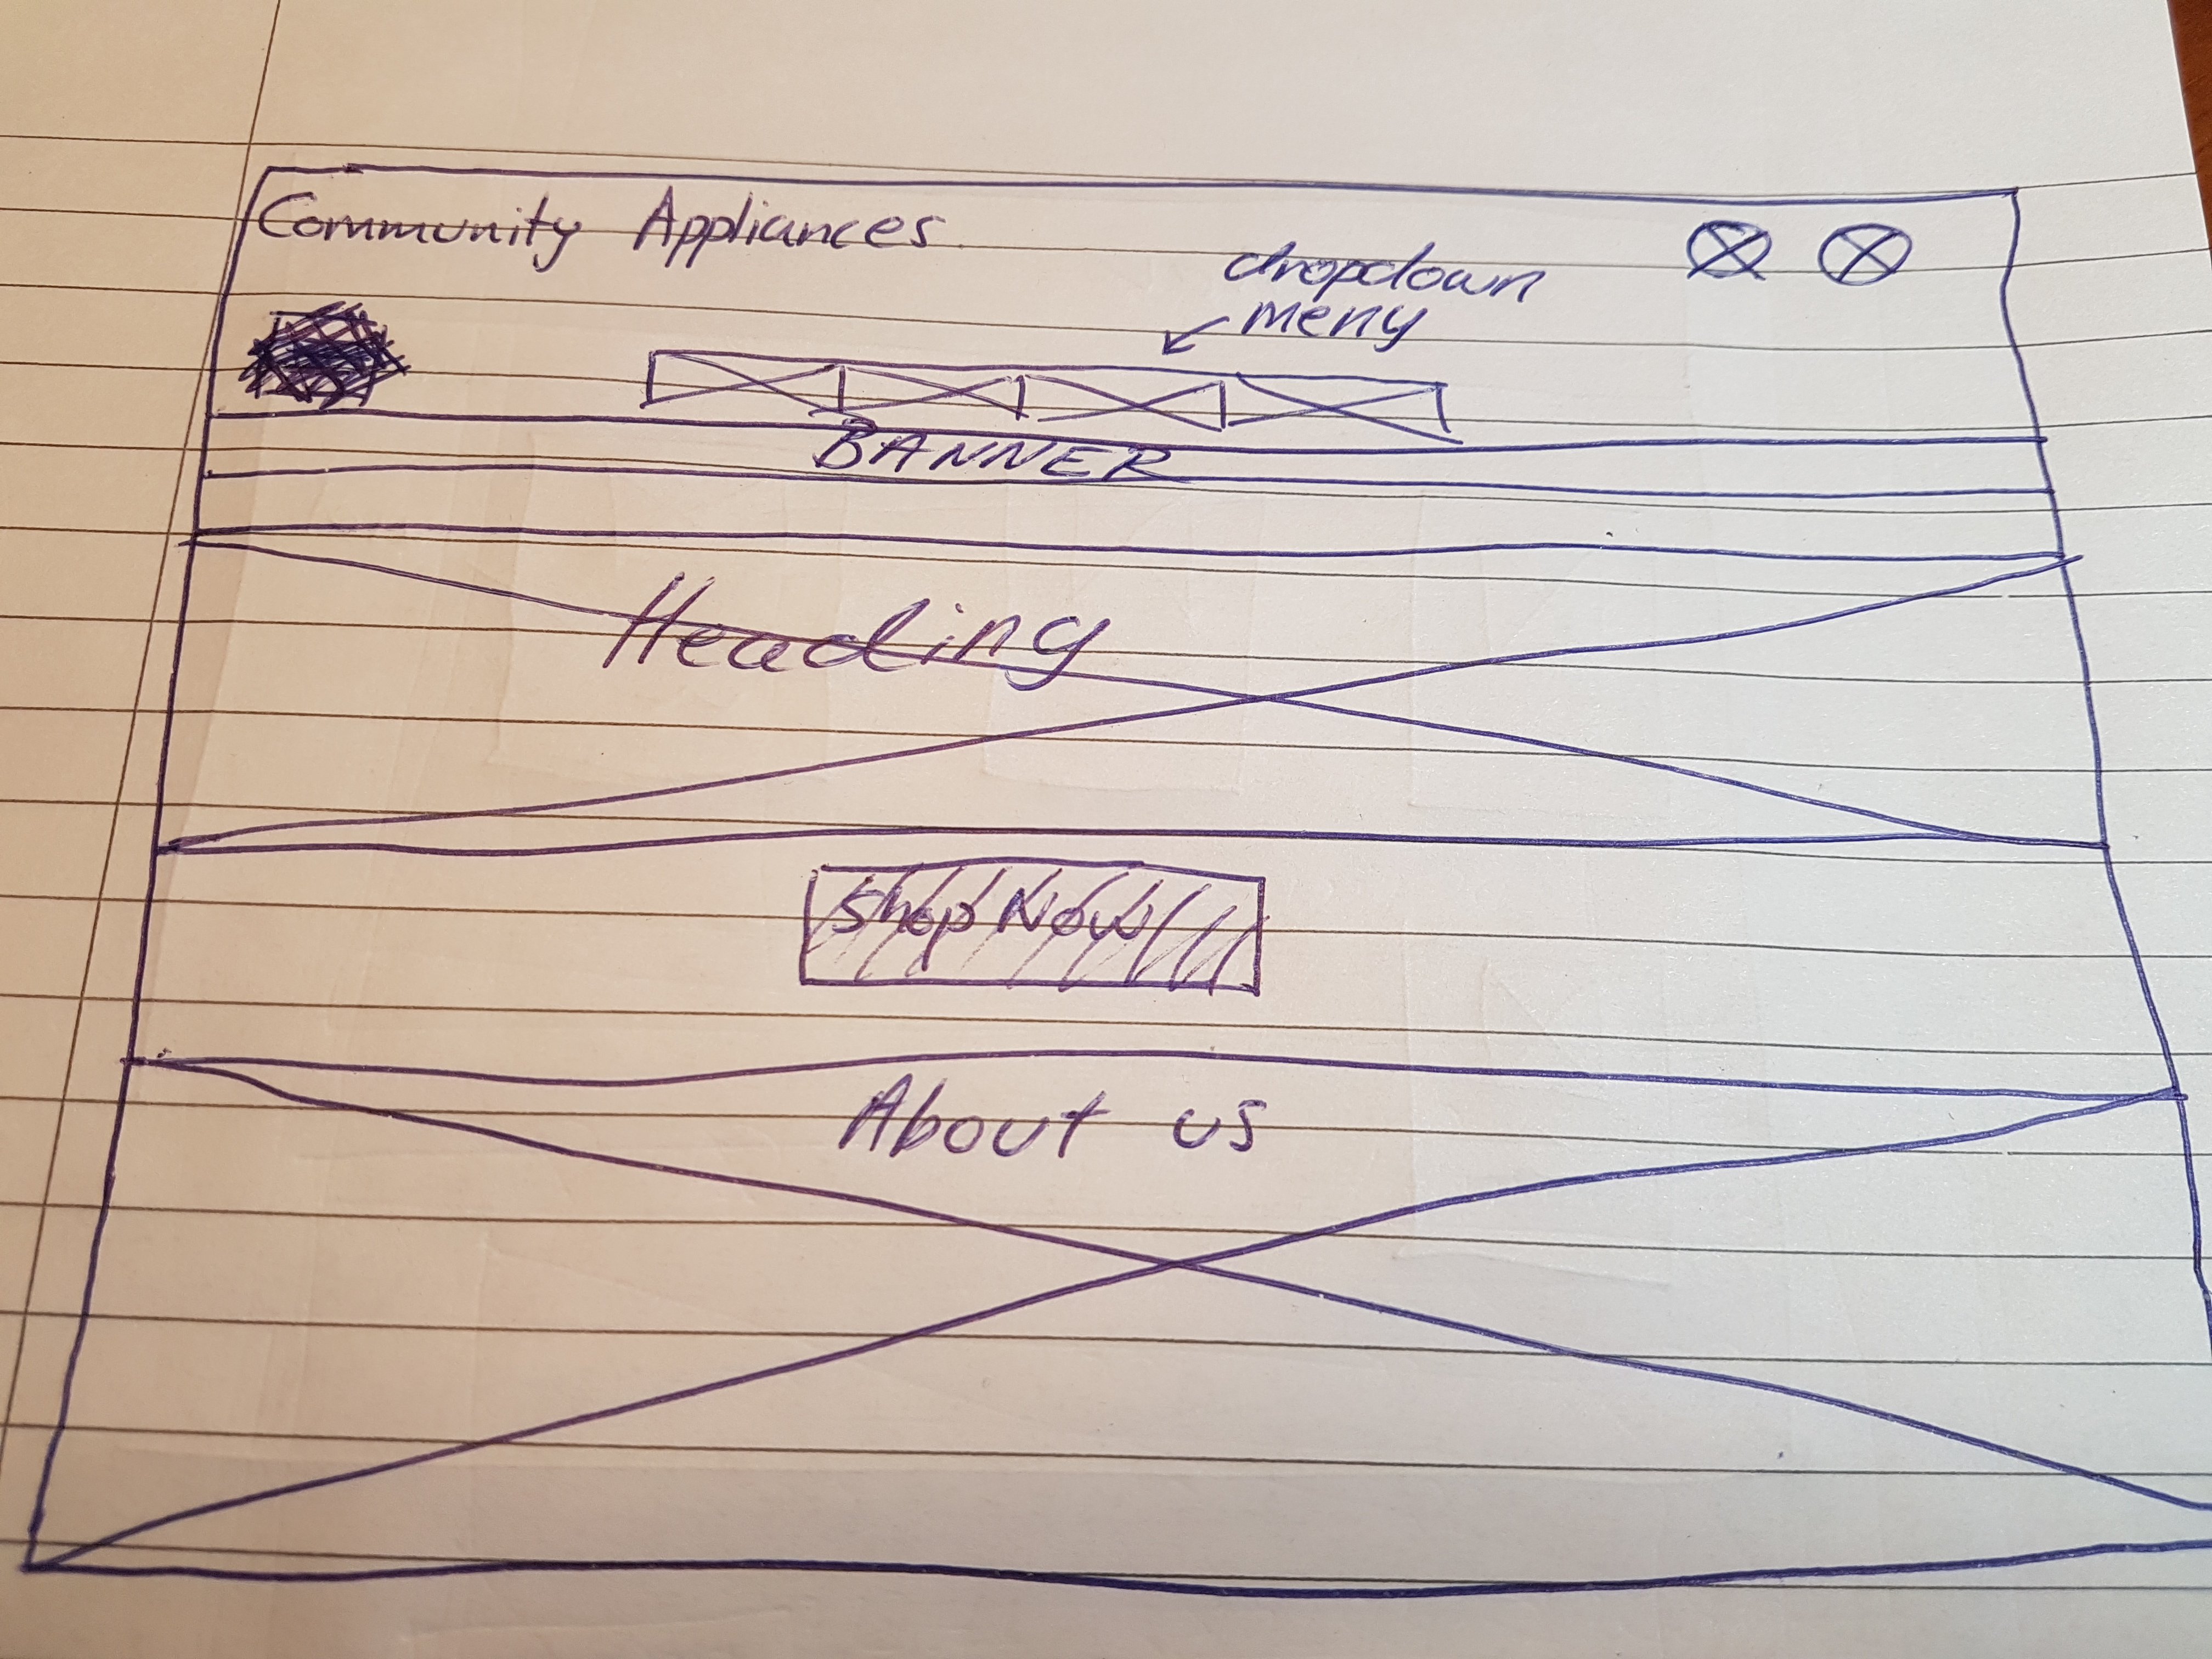 Community Appliances
dropdown
meny
BANNER
Heading
Shop Now
About us